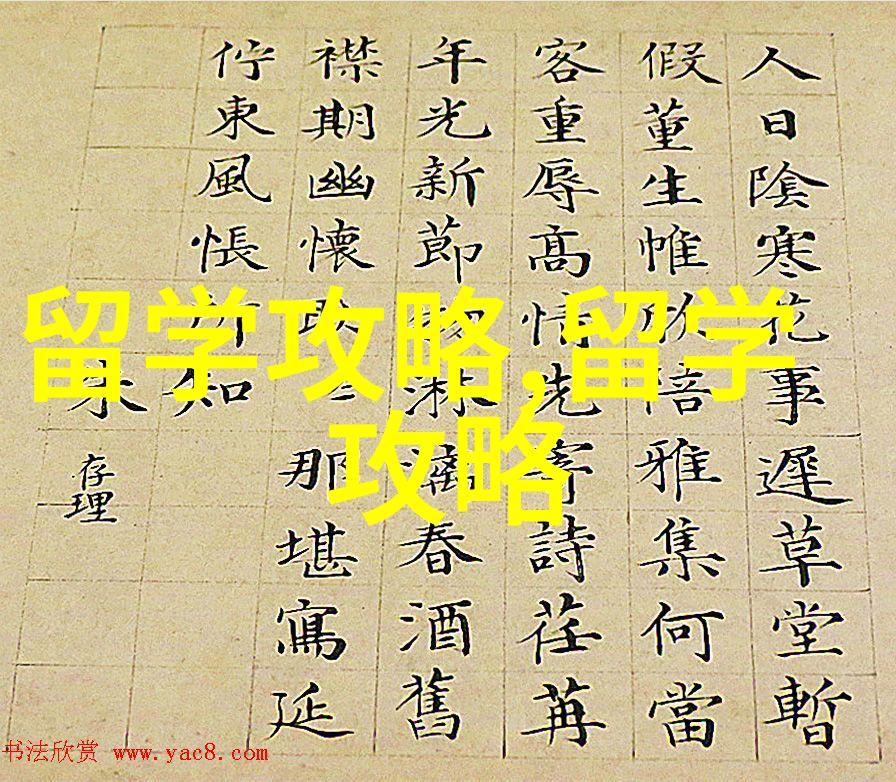 人日陰寒花事遲草堂暫
假董生帷陪雅集何當
客重辱高情先寄詩荏苒
年光新節物淋漓春酒舊
襟期幽懷那堪寫延
佇東風悵所知
求
存理
留学攻略,留学
攻略
书法欣赏 www.yac8.com